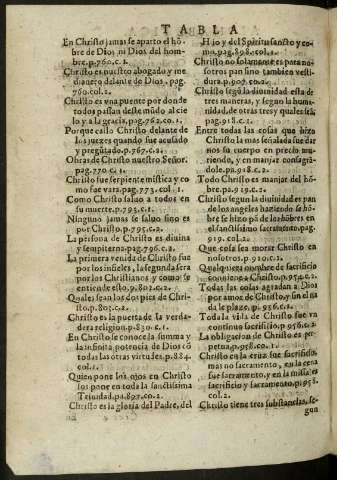 TABLA
En Christo jamas se aparto el hõ
bre de Dios ni Dios del hom
bre.p.760.c.1.
Christo es nuestro abogado y me
dianero delante de Dios. pag.
760.col.2.
Christo es vna puente por donde
todos passan deste mũdo al cie
lo y a la gracia.762.co.1.
Porque callo Christo delante de
los juezes quando fue acusado
y pregũtado.p.767.c.1.
Obras de Christo nuestro Señor.
pag.770.c.1.
Christo fue serpiente mistica y co
mo fue vara.pag.773.col.1.
Como Christo saluo a todos en
su muerte.p.793.c.2.
Ninguno jamas se saluo sino es
por Christo.p.795.c.2.
La persona de Christo es diuina
y sempiterna.pag.796.c.2.
La primera venida de Christo fue
por los infieles, la segunda sera
por los Christianos y como se
entiende esto.p.802.c.2.
Quales sean los dos pies de Chri-
sto.p.803.c.2.
Christo es la puerta de la verda-
dera religion.p.830.c.1.
En Christo se conoce la summa y
la infinita potencia de Dios cõ
todas las otras virtudes.p.884.
col.1.
Quien pone los ojos en Christo
los pone en toda la sanctissima
Trinidad.pa.897.co.2.
Christo es la gloria del Padre, del
Hijo y del Spiritu sancto y co-
mo.pag.898.col.1.
Christo no solamente es para no-
sotros pan sino tambien vesti-
dura.p.907.co.2.
Christo segũ la diuinidad esta de
tres maneras, y segun la huma
nidad, de otras tres y quales seã
pag.913.c.1.
Entre todas las cosas que hizo
Christo la mas señalada fue dar
nos su cuerpo en precio mu-
riendo, y en manjar consagrã-
dole.pa.918.c.2.
Todo Christo es manjar del hõ-
bre.pa.919.c.2.
Christo segun la diuinidad es pan
de los angeles haziendo se hõ-
bre se hizo pã de los hõbres en
el sanctissimo sacramento.pag.
919.col.2
Que cosa sea morar Christo en
nosotros.p.920.c.1.
Qualquiera nombre de sacrificio
conuiene a Christo.p.954.c.2.
Todas las cosas agradan a Dios
por amor de Christo, y sin el na
da le plaze.p.956.c.1.
Toda la vida de Christo fue vn
continuo sacrificio.p.956.c.2.
La obligacion de Christo es per-
petua.p.958.c.1.
Christo en la cruz fue sacrificio,
mas no sacramento, en la cena
fue sacramento, y en la missa es
sacrificio y sacramento.p.958.
col.2.
Christo tiene tres substancias, se-
gun